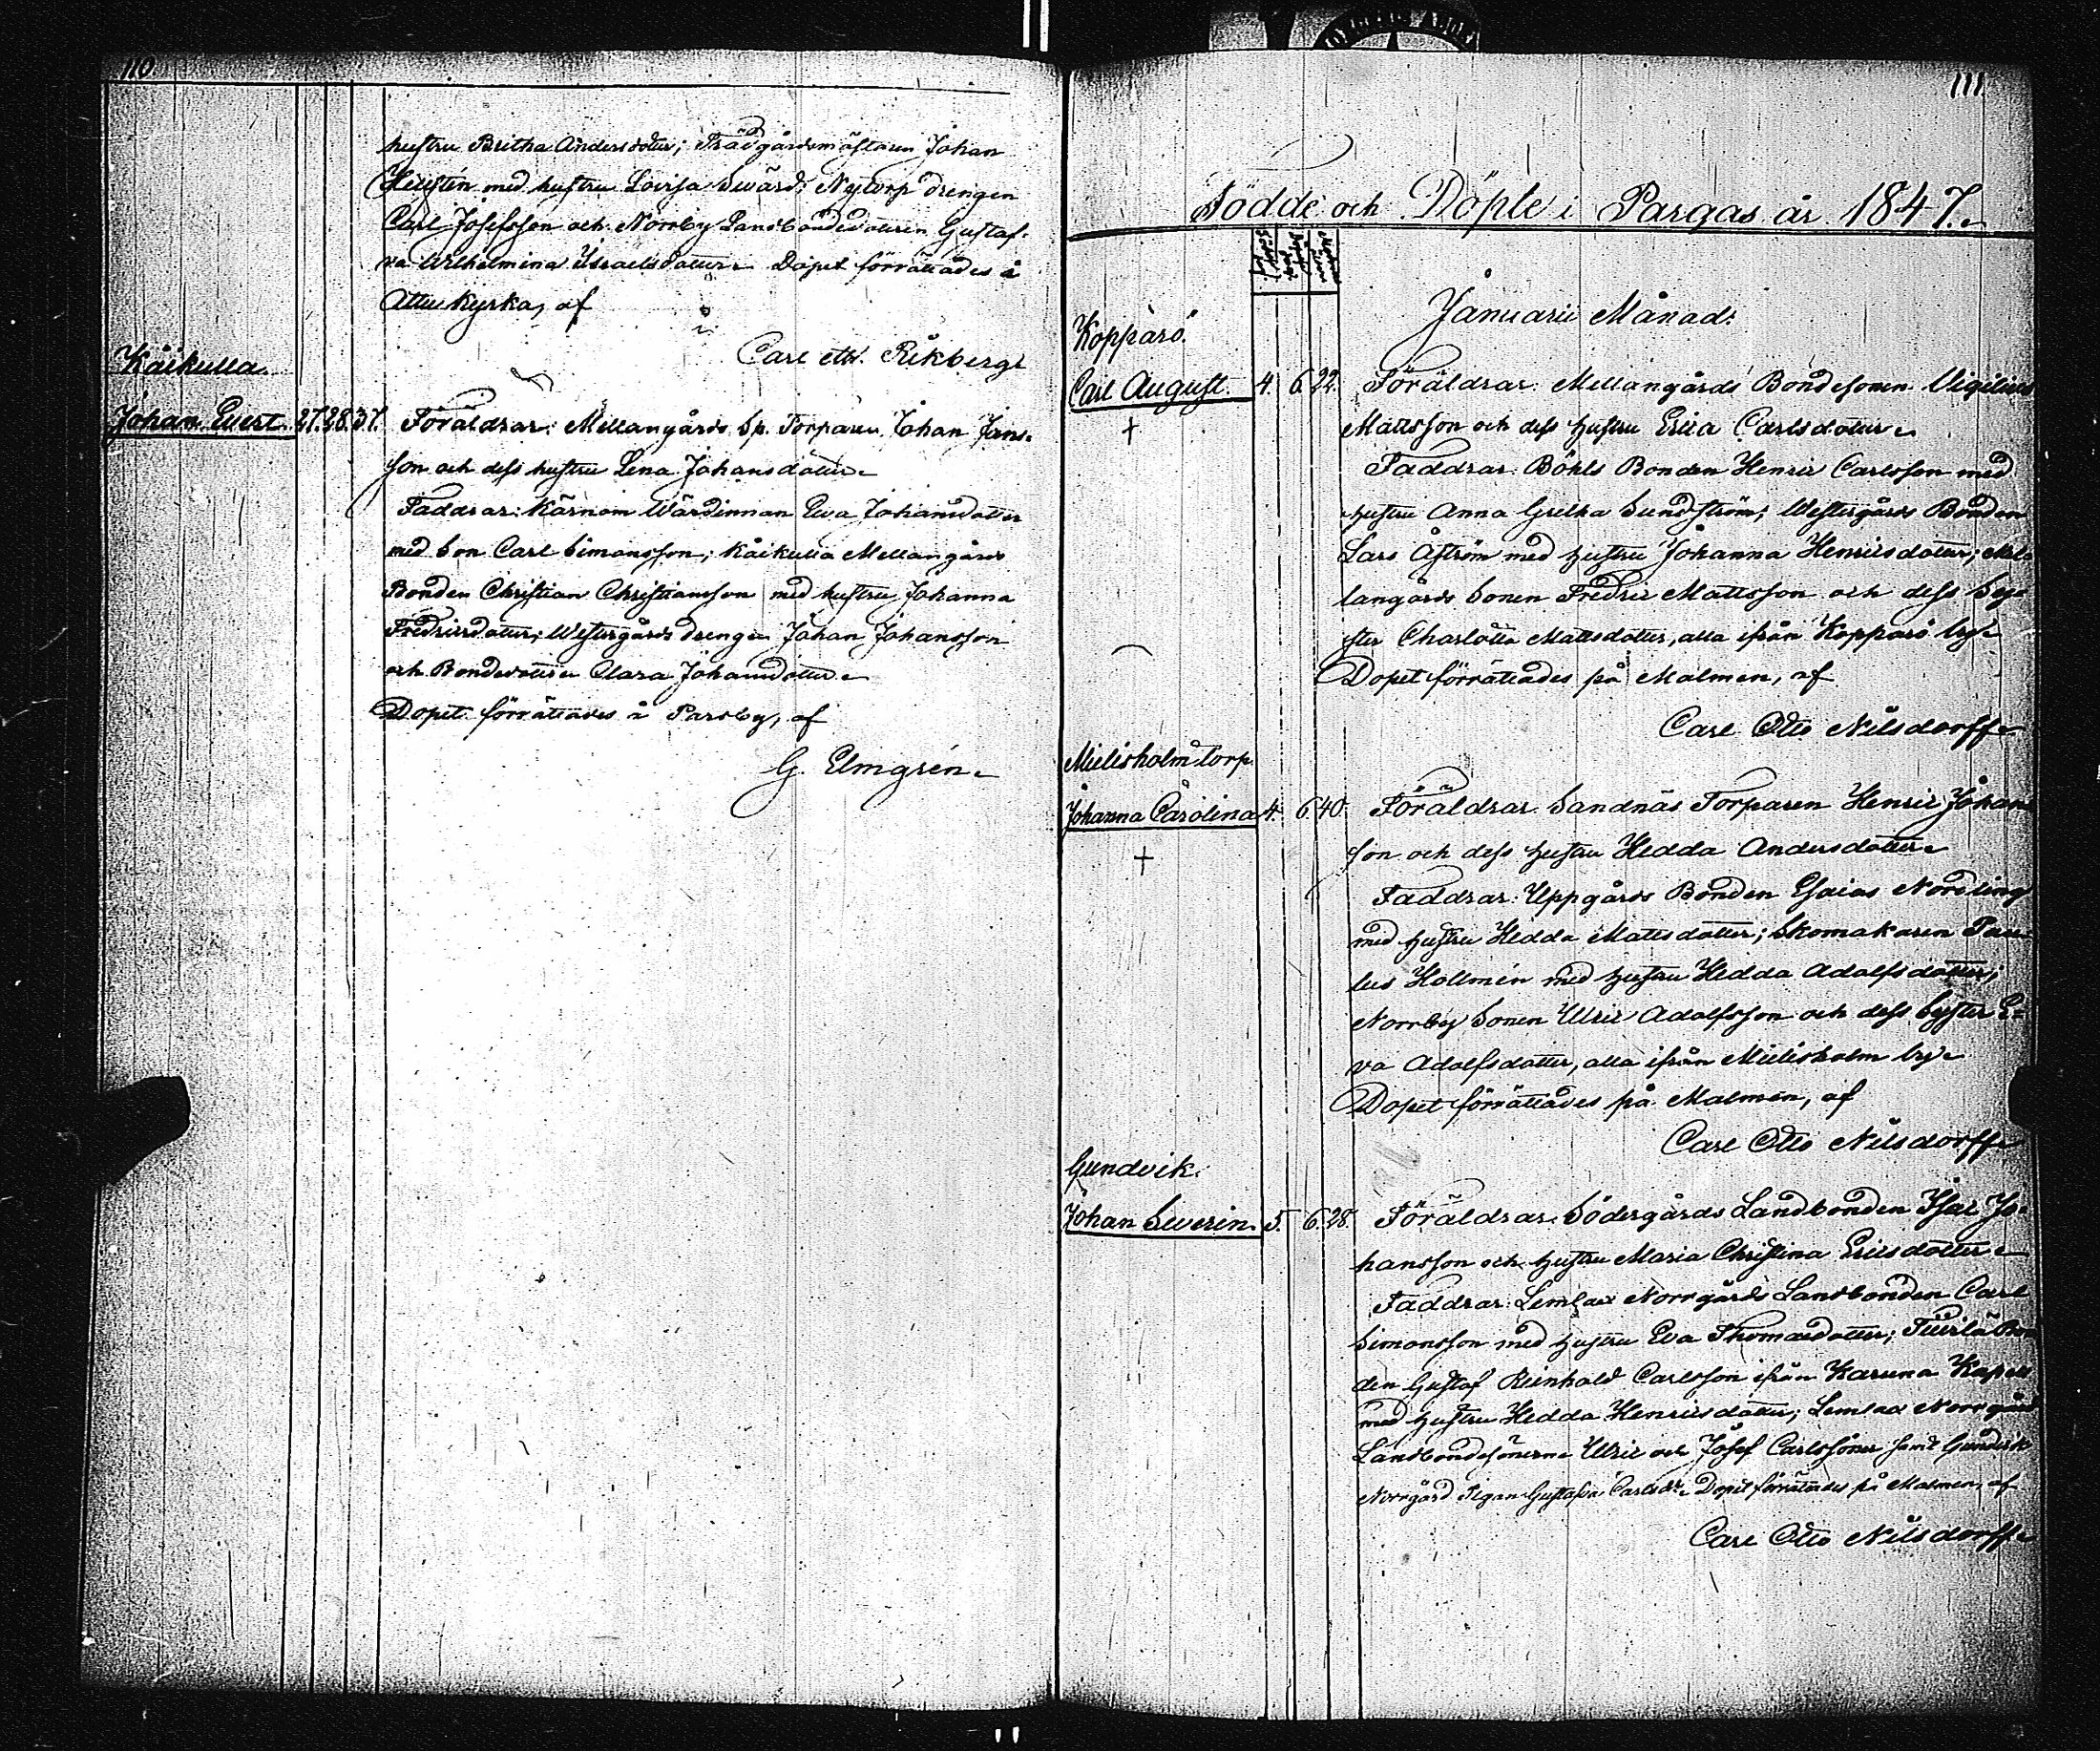 110
hustru Britha Andersdotter; Trädgårdsmästaren Johan
Hellstén med hustru Lovisa Swärd; Nytorp drengen
Carl Josefsson och Norrby Landbondedottren Gustaf-
va Wilhelmina Israelsdotter. Dopet förrättades i
Attu Kyrka, af
Carl Rikberg.
Kåikulla.
Johan Evert. 27. 28. 37. Föräldrar: Mellangårds Sp. Torparen Johan Jans-
son och dess hustru Lena Johansdotter.
Faddrar: Kärnom Wärdinnan Eva Johansdotter
med Son Carl Simonsson; Kåikulla Mellangårds
Bonden Christian Christiansson med hustru Johanna
Fredricsdotter; Westergårds drengen Johan Johansson
och Bondedottren Clara Johansdotter.
Dopet förrättades i Parsby, af
G. Elmgrén.
111
Födde och Döpte i Pargas år 1847.
Januarii Månad.
Kopparö.
Carl August. 4. 6. 22. Föräldrar: Mellangårds Bondesonen Vigilius
Mattsson och dess hustru Erica Carlsdotter.
Faddrar: Böhls Bonden Henric Carlsson med
hustru Anna Gretha Sundström; Westergårds Bonden
Lars Åström med hustru Johanna Henricsdotter; Mel-
langårds Sonen Fredric Mattsson och dess Sy-
ster Charlotta Mattsdotter, alla ifrån Kopparö by.
Dopet förrättades på Malmen, af
Carl Otto Nilsdorff.
Mielisholm torp.
Johanna Carolina 4. 6. 40. Föräldrar: Sandnäs Torparen Henric Johans-
son och dess hustru Hedda Andersdotter.
Faddrar: Uppgårds Bonden Esaias Nordling
med hustru Hedda Mattsdotter; Skomakaren Pau-
lus Hollmén med hustru Hedda Adolfsdotter;
Norrby Sonen Ulric Adolfsson och dess Syster E-
va Adolfsdotter, alla ifrån Mielisholm by.
Dopet förrättades på Malmen, af
Carl Otto Nilsdorff.
Gundvik.
Johan Severin. 5. 6. 28. Föräldrar: Södergårds Landbonden Isac Jo-
hansson och hustru Maria Christina Ericsdotter.
Faddrar: Lemlax Norrgårds Landbonden Carl
Simonsson med hustru Eva Thomasdotter; Bon-
den Gustaf Reinhold Carlsson ifrån Karuna Kapell
med hustru Hedda Henricsdotter; Lemlax Norrgård
Landbondesönerne Ulric och Josef Carlssöner samt Gundvik
Norrgård Pigan Gustafva Carlsdr. Dopet förrättades på Malmen, af
Carl Otto Nilsdorff.